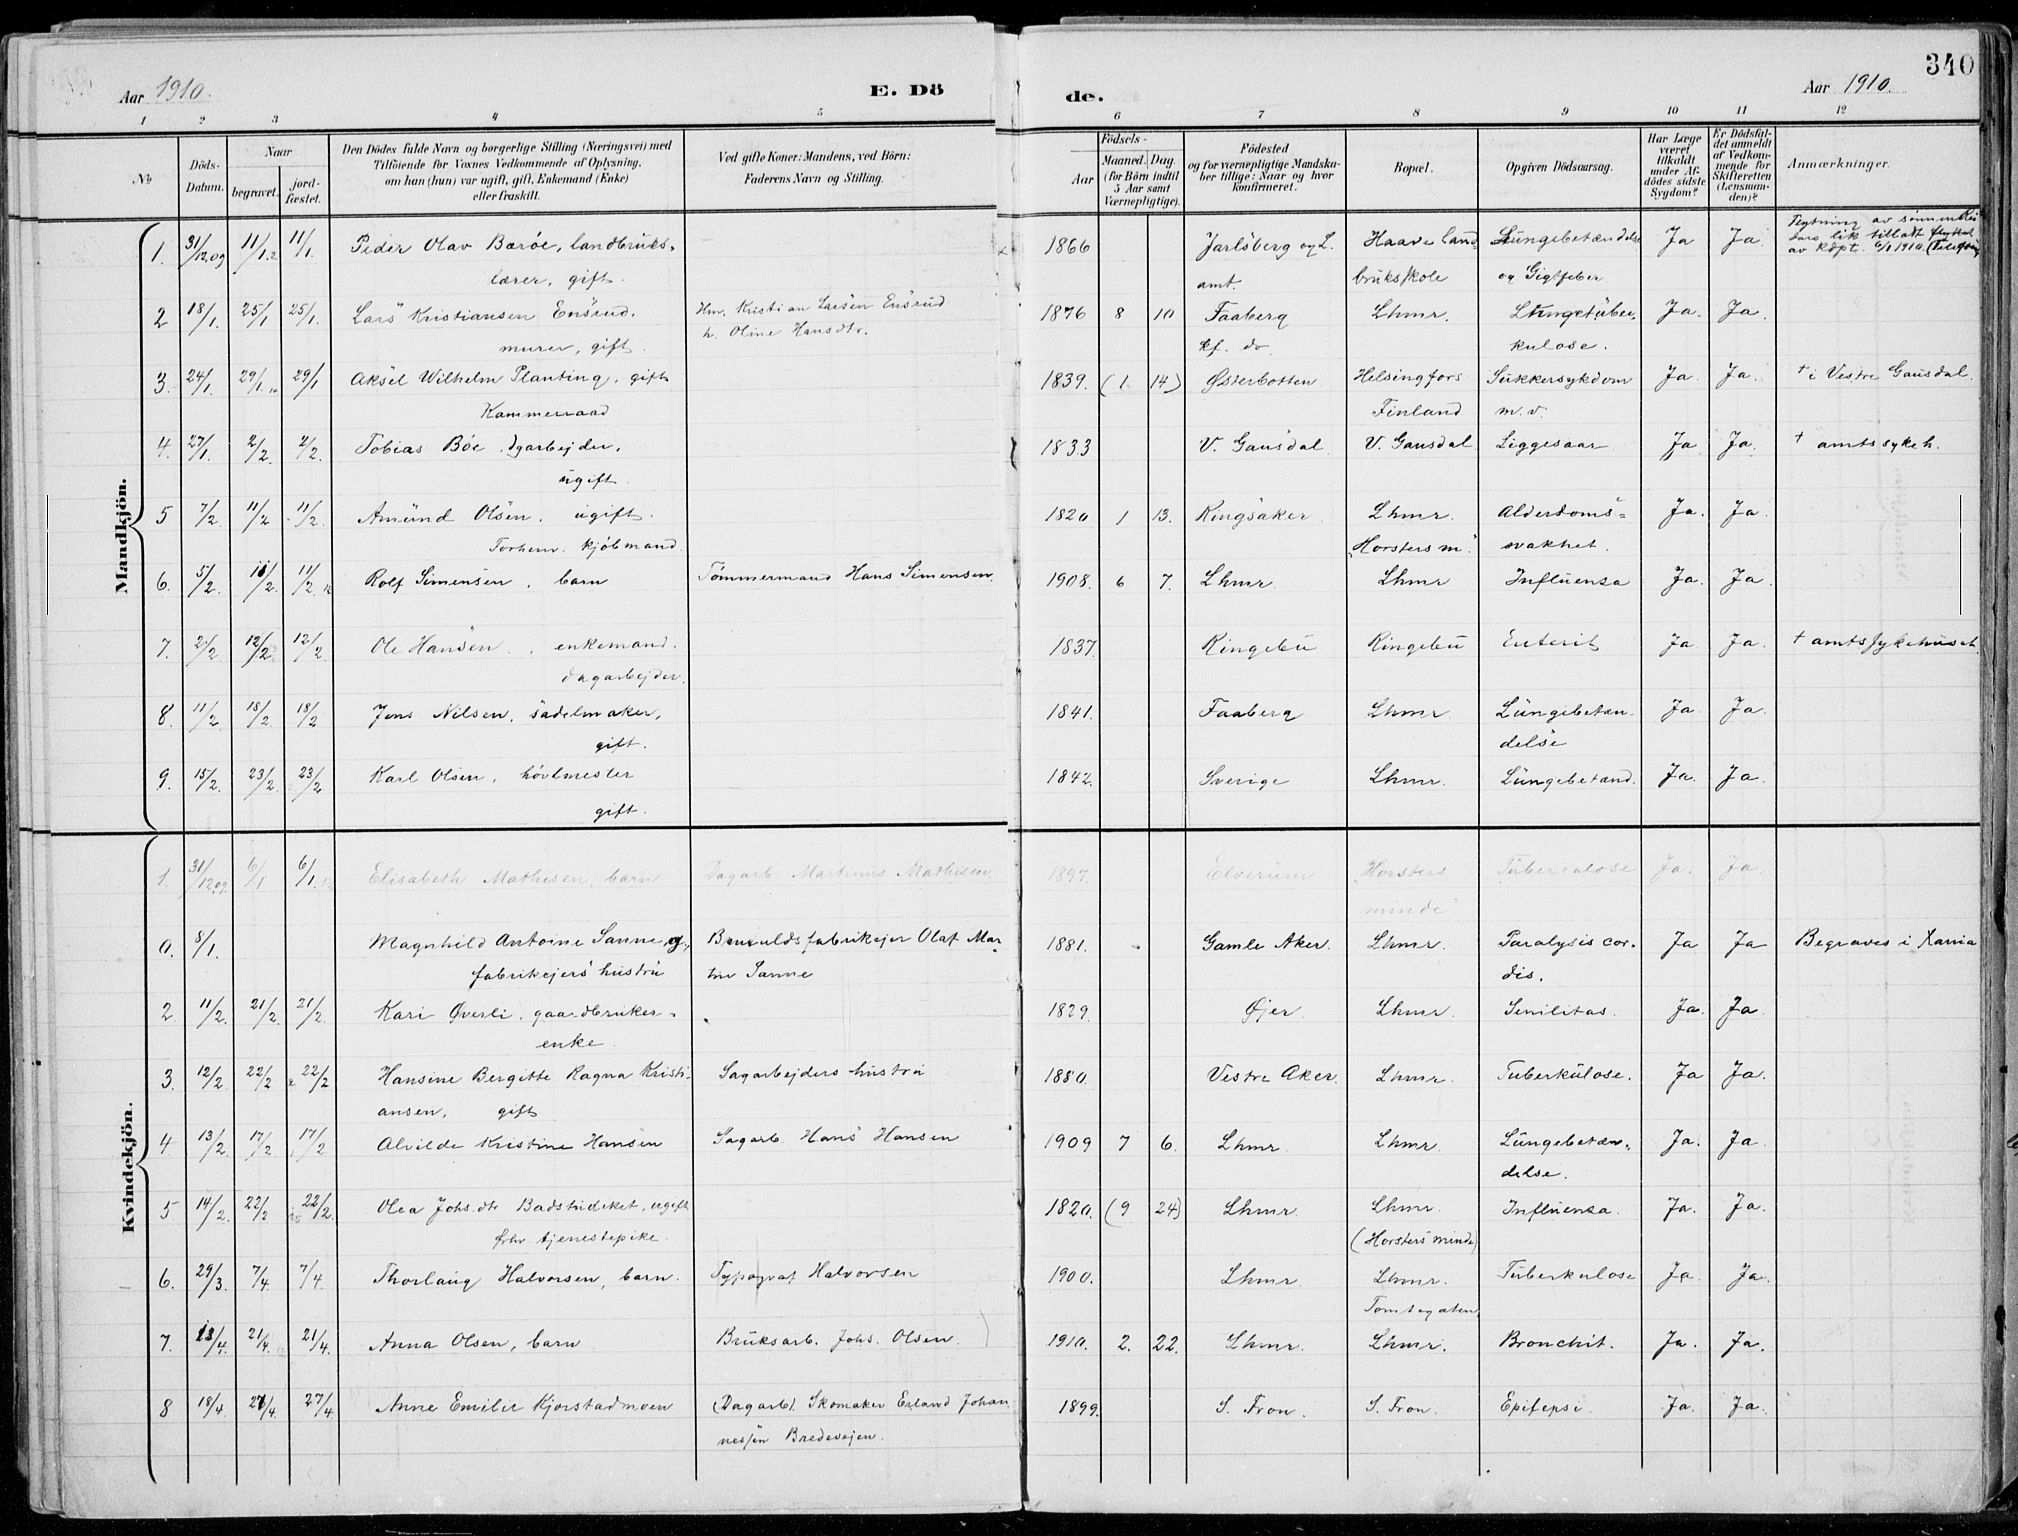 340
Aar 1910. E. Dö de. Aar 1910.
1 2 3 4 5 6 7 8 9 10 11 12
No
Döds-Datum.
Naar
begravet.
jord-fæstet.
Den Dödes fulde Navn og borgerlige Stilling (Næringsvei) med
Tilföiende for Voxnes Vedkommende af Oplysning,
om han (hun) var ugift, gift, Enkemand (Enke)
eller fraskilt.
Ved gifte Koner: Mandens, ved Börn:
Faderens Navn og Stilling.
Födsels-
Aar
Maaned. Dag.
(for Börn indtil
5 Aar samt
Værnepligtige).
Födested
og for værnepligtige Mandska-
ber tillige: Naar og hvor
konfirmeret.
Bopæl.
Opgiven Dödsaarsag.
Har Læge
været
tilkaldt
under Af-
dödes sidste
Sygdom?
Er Dödsfal-
det anmeldt
af Vedkom-
mende for
Skifteretten
(Lensman-
den)?
Anmærkninger.
Mandkjön.
1. 31/12.09 11/1. 11/1. Peder Olav Barøe, landbruks- 1866 Jarlsberg og L. Haave land- Lungebetændelse Ja Ja
lærer, gift. amt. bruksskole og Gigtfeber
av Kdpt. 6/1 1910.
2 18/1. 25/1 25/1. Lars Kristiansen Ensrud. Hm. Kristian Larsen Ensrud 1876 8 10 Faaberg Lhmr. Lungetuber- Ja. Ja.
murer, gift. h. Oline Hansdtr. kf. do. kulose.
3. 24/1. 29/1. 29/1 Aksel Wilhelm Planting, gift 1839. (1. 14) Østerbotten Helsingfors Sukkersykdom Ja. Ja. † i Vestre Gausdal.
Kammerraad Finland m.v.
4. 27/1. 2/2. 2/2. Tobias Bøe. dgarbejder, 1833 V. Gausdal V. Gausdal Liggesaar Ja Ja. † amtssykeh.
ugift.
5 7/2. 11/2 11/2. Amund Olsen, ugift. 1820 1 13. Ringsaker Lhmr. Alderdoms- Ja. Ja.
Forhenv. kjøbmand. "Horsters m." svakhet.
6. 5/2. 11/2. 11/2 Rolf Simensen, barn Tømmermand Hans Simensen 1908. 6 7. Lhmr. Lhmr Influensa Ja. Ja.
7. 2/2. 12/2 12/2. Ole Hansen, enkemand. 1837. Ringebu Ringebu Enterit Ja Ja. † amtssykehuset.
dagarbejder.
8. 11/2 18/2 18/2 Jens Nilsen, sadelmaker, 1841. Faaberg Lhmr. Lungebetæn- Ja. Ja.
gift. delse
9. 15/2. 23/2. 23/2 Karl Olsen, høvlmester 1842. Sverige Lhmr. Lungebetænd. Ja. Ja.
gift.
Kvindekjön.
1. 31/12.09. 6/1 6/1. Elisabeth Mathisen, barn Dagarb. Martinus Mathisen 1897. Elverum "Horsters Tuberculose Ja. Ja.
minde"
0. 8/1. Magnhild Antoine Sanne, Bruvoldsfabrikejer Olaf Mar- 1881. Gamle Aker. Lhmr. Paralysis cor- Ja Ja Begraves i Xania
fabrikejers hustru tin Sanne dis.
2. 11/2. 21/2. 21/2. Kari Øverli, gaardbruker- 1829. Øjer Lhmr. Senilitas. Ja. Ja
enke.
3. 12/2 22/2 22/2 Hansine Bergitte Ragna Kristi- Sagarbejders hustru 1880. Vestre Aker. Lhmr. Tuberkulose. Ja Ja.
ansen, gift
4. 13/2. 17/2. 17/2 Alvilde Kristine Hansen Sagarb. Hans Hansen 1909 7 6. Lhmr Lhmr. Lungebetæn- Ja. Ja
delse.
5 14/2. 22/2 22/2. Olea Johs.dtr Badstudeket, ugift 1820. (9 24) Lhmr. Lhmr. Influensa. Ja. Ja.
tjenestepike. (Horsters minde)
6. 29/3. 7/4. 7/4. Thorlaug Halvorsen, barn. Typograf Halvorsen 1900. Lhmr Lhmr. Tuberkulose Ja Ja.
Tomtegaten,
7. 13/4. 21/4. 21/4. Anna Olsen, barn Bruksarb. Johs. Olsen. 1910. 2. 22. Lhmr. Lhmr. Bronchit. Ja. Ja.
8 18/4. 27/4. 27/4. Anne Emilie Kjorstadmoen (Dagarb). Skomaker Erland Johan 1899. S. Fron. S. Fron. Epilepsi Ja. Ja.
nessen Bredevejen.